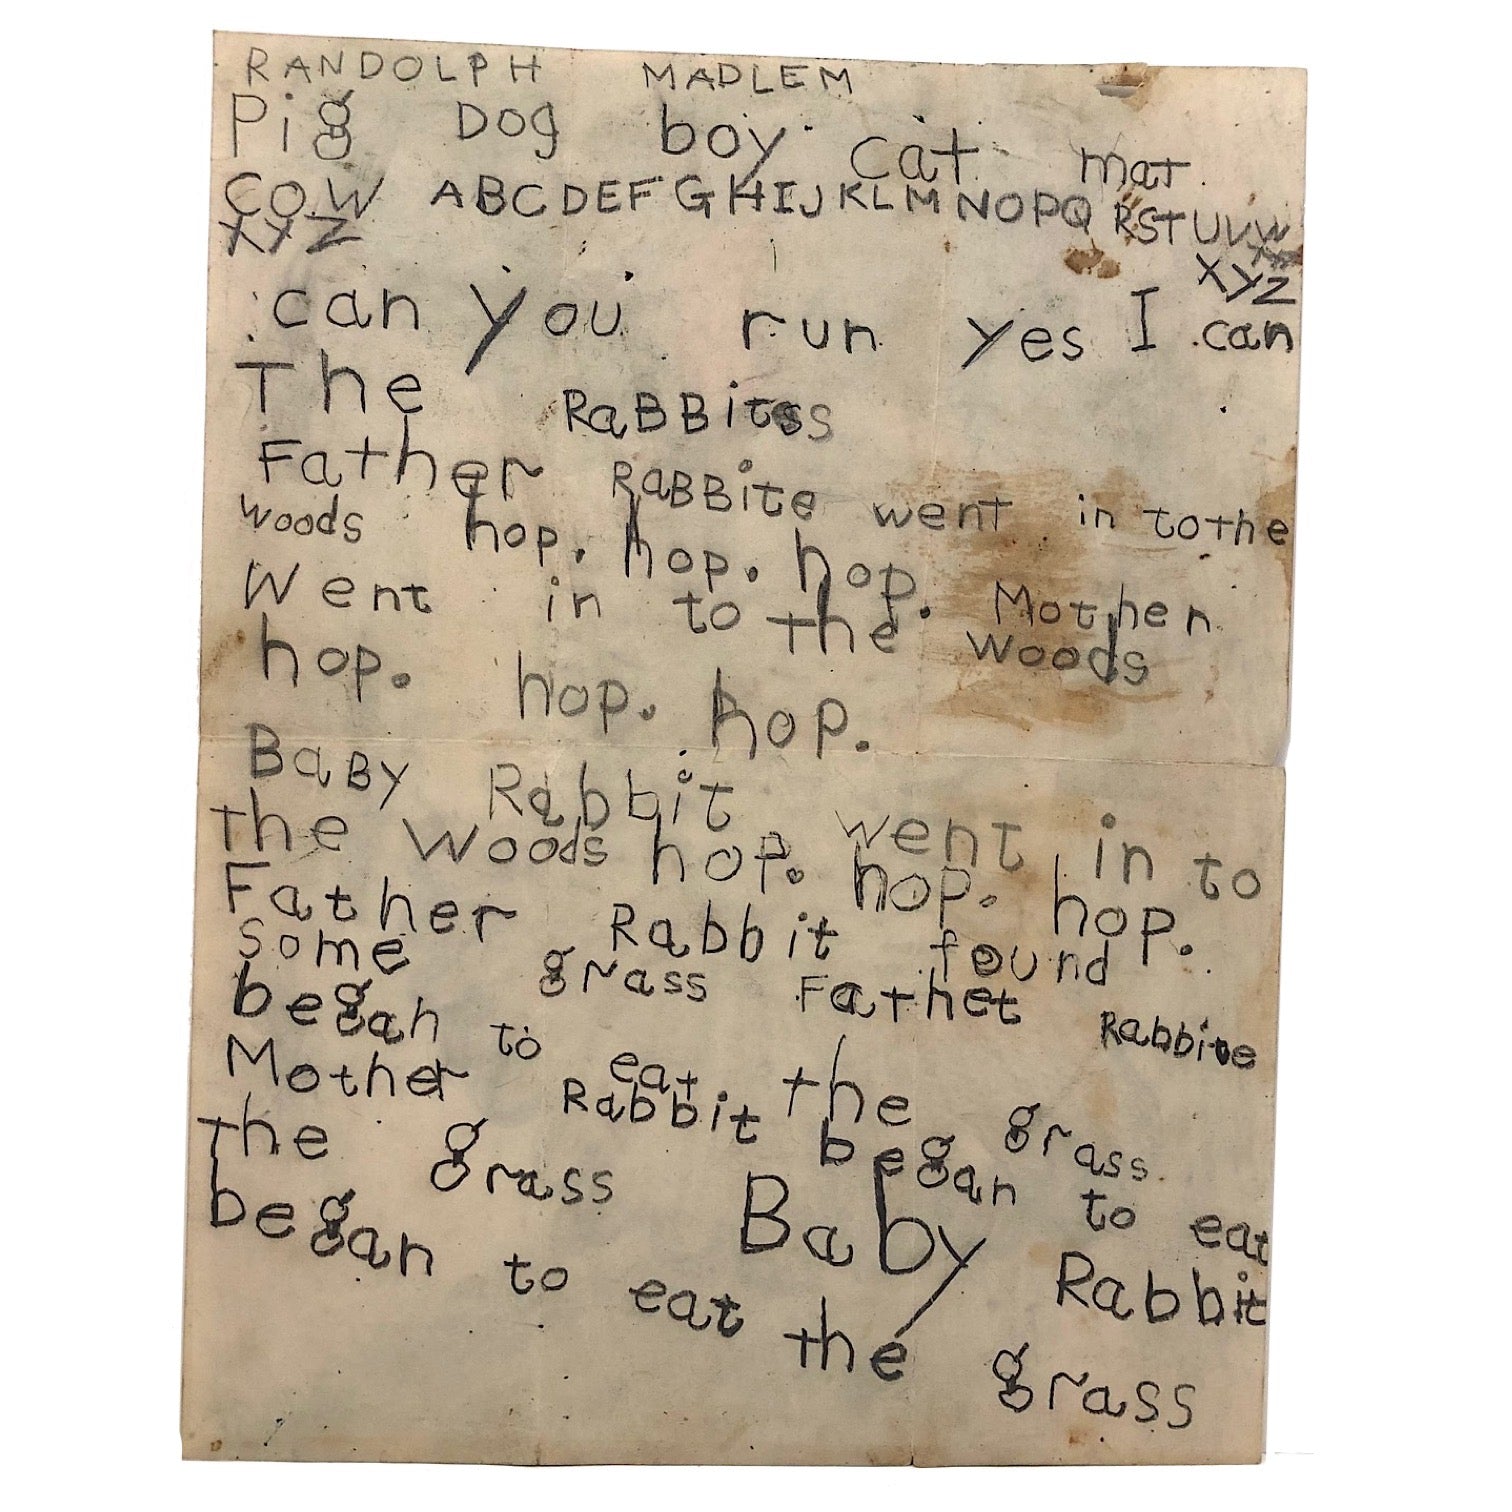 RANDOLPH MADLEM
Pig Dog boy cat mat
COW ABCDEFGHIJKLMNOPQRSTUVW
XYZ XYZ
can you run yes I can
The RaBBitss
Father RaBBite went in tothe
woods hop. hop. hop. Mother
Went in to the woods
hop. hop. hop.
BaBy Rabbit went in to
the Woods hop. hop. hop.
Father Rabbit found
some grass Father Rabbite
began to eat the grass
Mother Rabbit began to eat
the grass Baby Rabbit
began to eat the grass